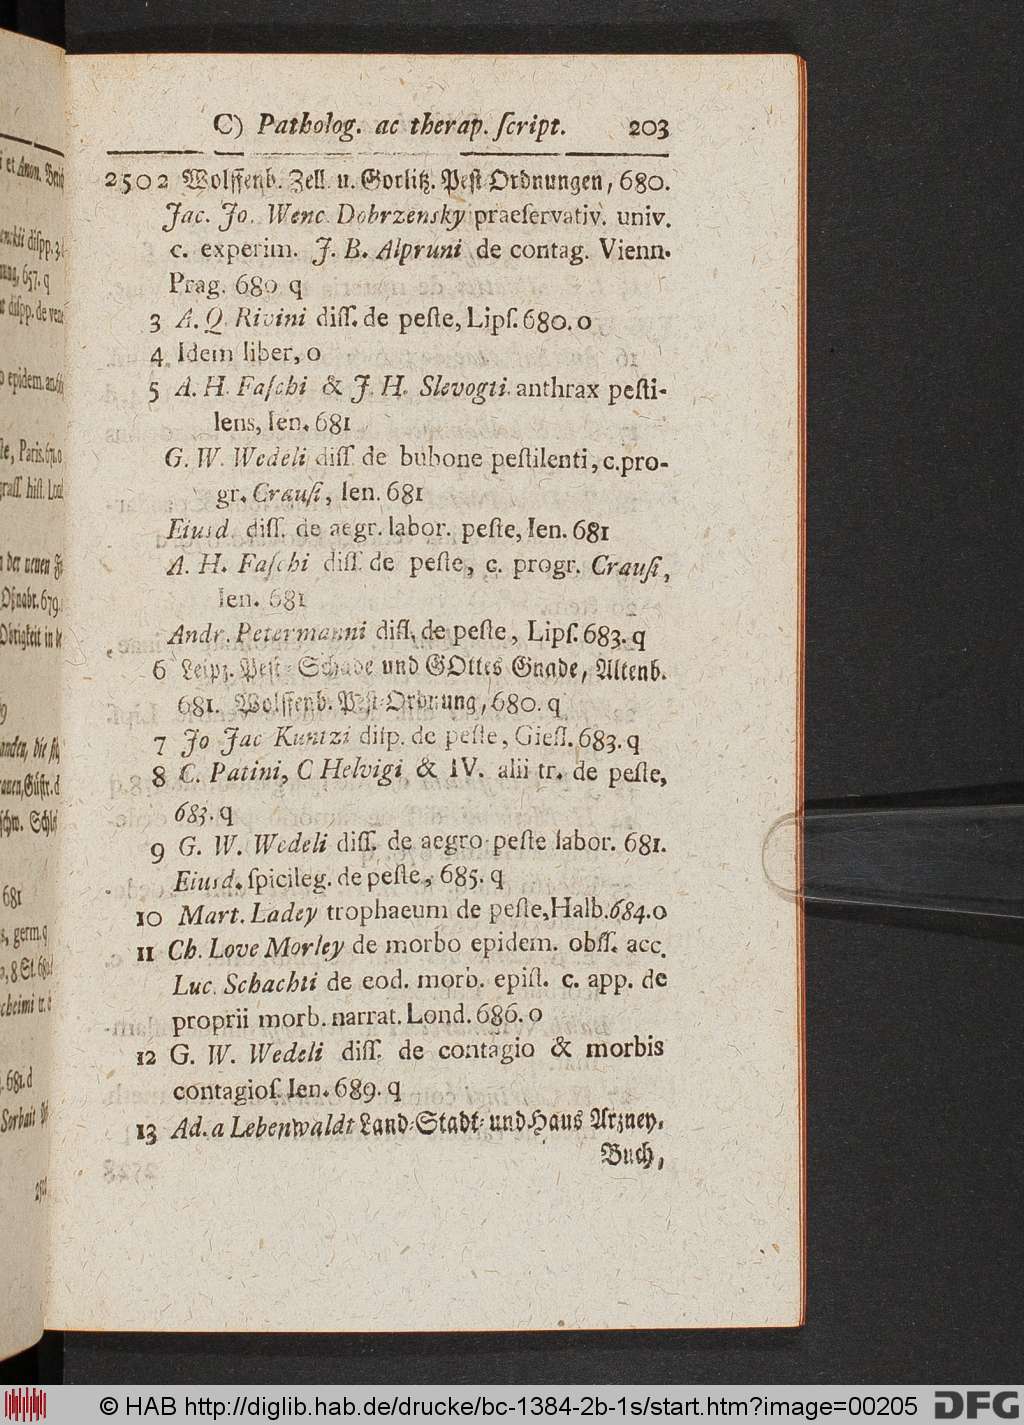 C) Patholog. ac therap. ſcript. 203
2502 Wolffenb. Zell. u. Gorlitz. Peſt-Ordnungen, 680.
Jac. Jo. Wenc. Dobrzensky praeſervativ. univ.
c. experim. J. B. Alpruni de contag. Vienn.
Prag. 680 q
3 A. Q. Rivini diſſ. de peſte, Lipſ. 680. o
4 Idem liber, o
5 A. H. Faſchi & J. H. Slevogti anthrax peſti-
lens, Ien. 681
G. W. Wedeli diſſ. de bubone peſtilenti, c. pro-
gr. Crauſi, Ien. 681
Eiusd. diſſ. de aegr. labor. peſte, Ien. 681
A. H. Faſchi diſſ. de peſte, c. progr. Crauſi,
Ien. 681
Andr. Petermanni diſſ. de peſte, Lipſ. 683. q
6 Leipz. Peſt-Schade und GOttes Gnade, Altenb.
681. Wolffenb. Peſt-Ordnung, 680. q
7 Jo Jac Kuntzi diſp. de peſte, Gieſſ. 683. q
8 C. Patini, C Helvigi & IV. alii tr. de peſte,
683. q
9 G. W. Wedeli diſſ. de aegro peſte labor. 681.
Eiusd. ſpicileg. de peſte, 685. q
10 Mart. Ladey trophaeum de peſte, Halb. 684. o
11 Ch. Love Morley de morbo epidem. obſſ. acc.
Luc. Schachti de eod. morb. epiſt. c. app. de
proprii morb. narrat. Lond. 686. o
12 G. W. Wedeli diſſ. de contagio & morbis
contagioſ. Ien. 689. q
13 Ad. a Lebenwaldt Land-Stadt- und Haus Arzney-
Buch,
© HAB http://diglib.hab.de/drucke/bc-1384-2b-1s/start.htm?image=00205
DFG